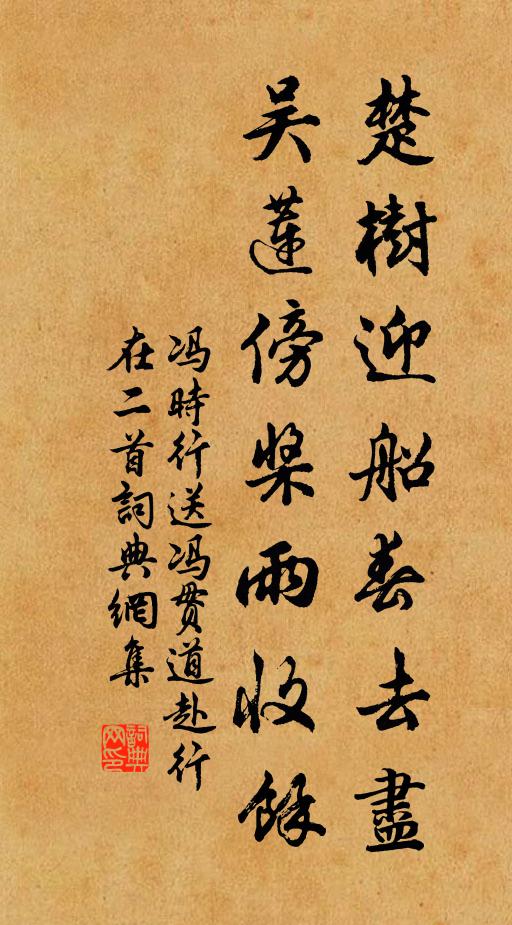 楚樹迎船春去盡
吳蓮傍槳雨收餘
冯時行送冯贯道赴行
在二首詞典網集
詞典網印